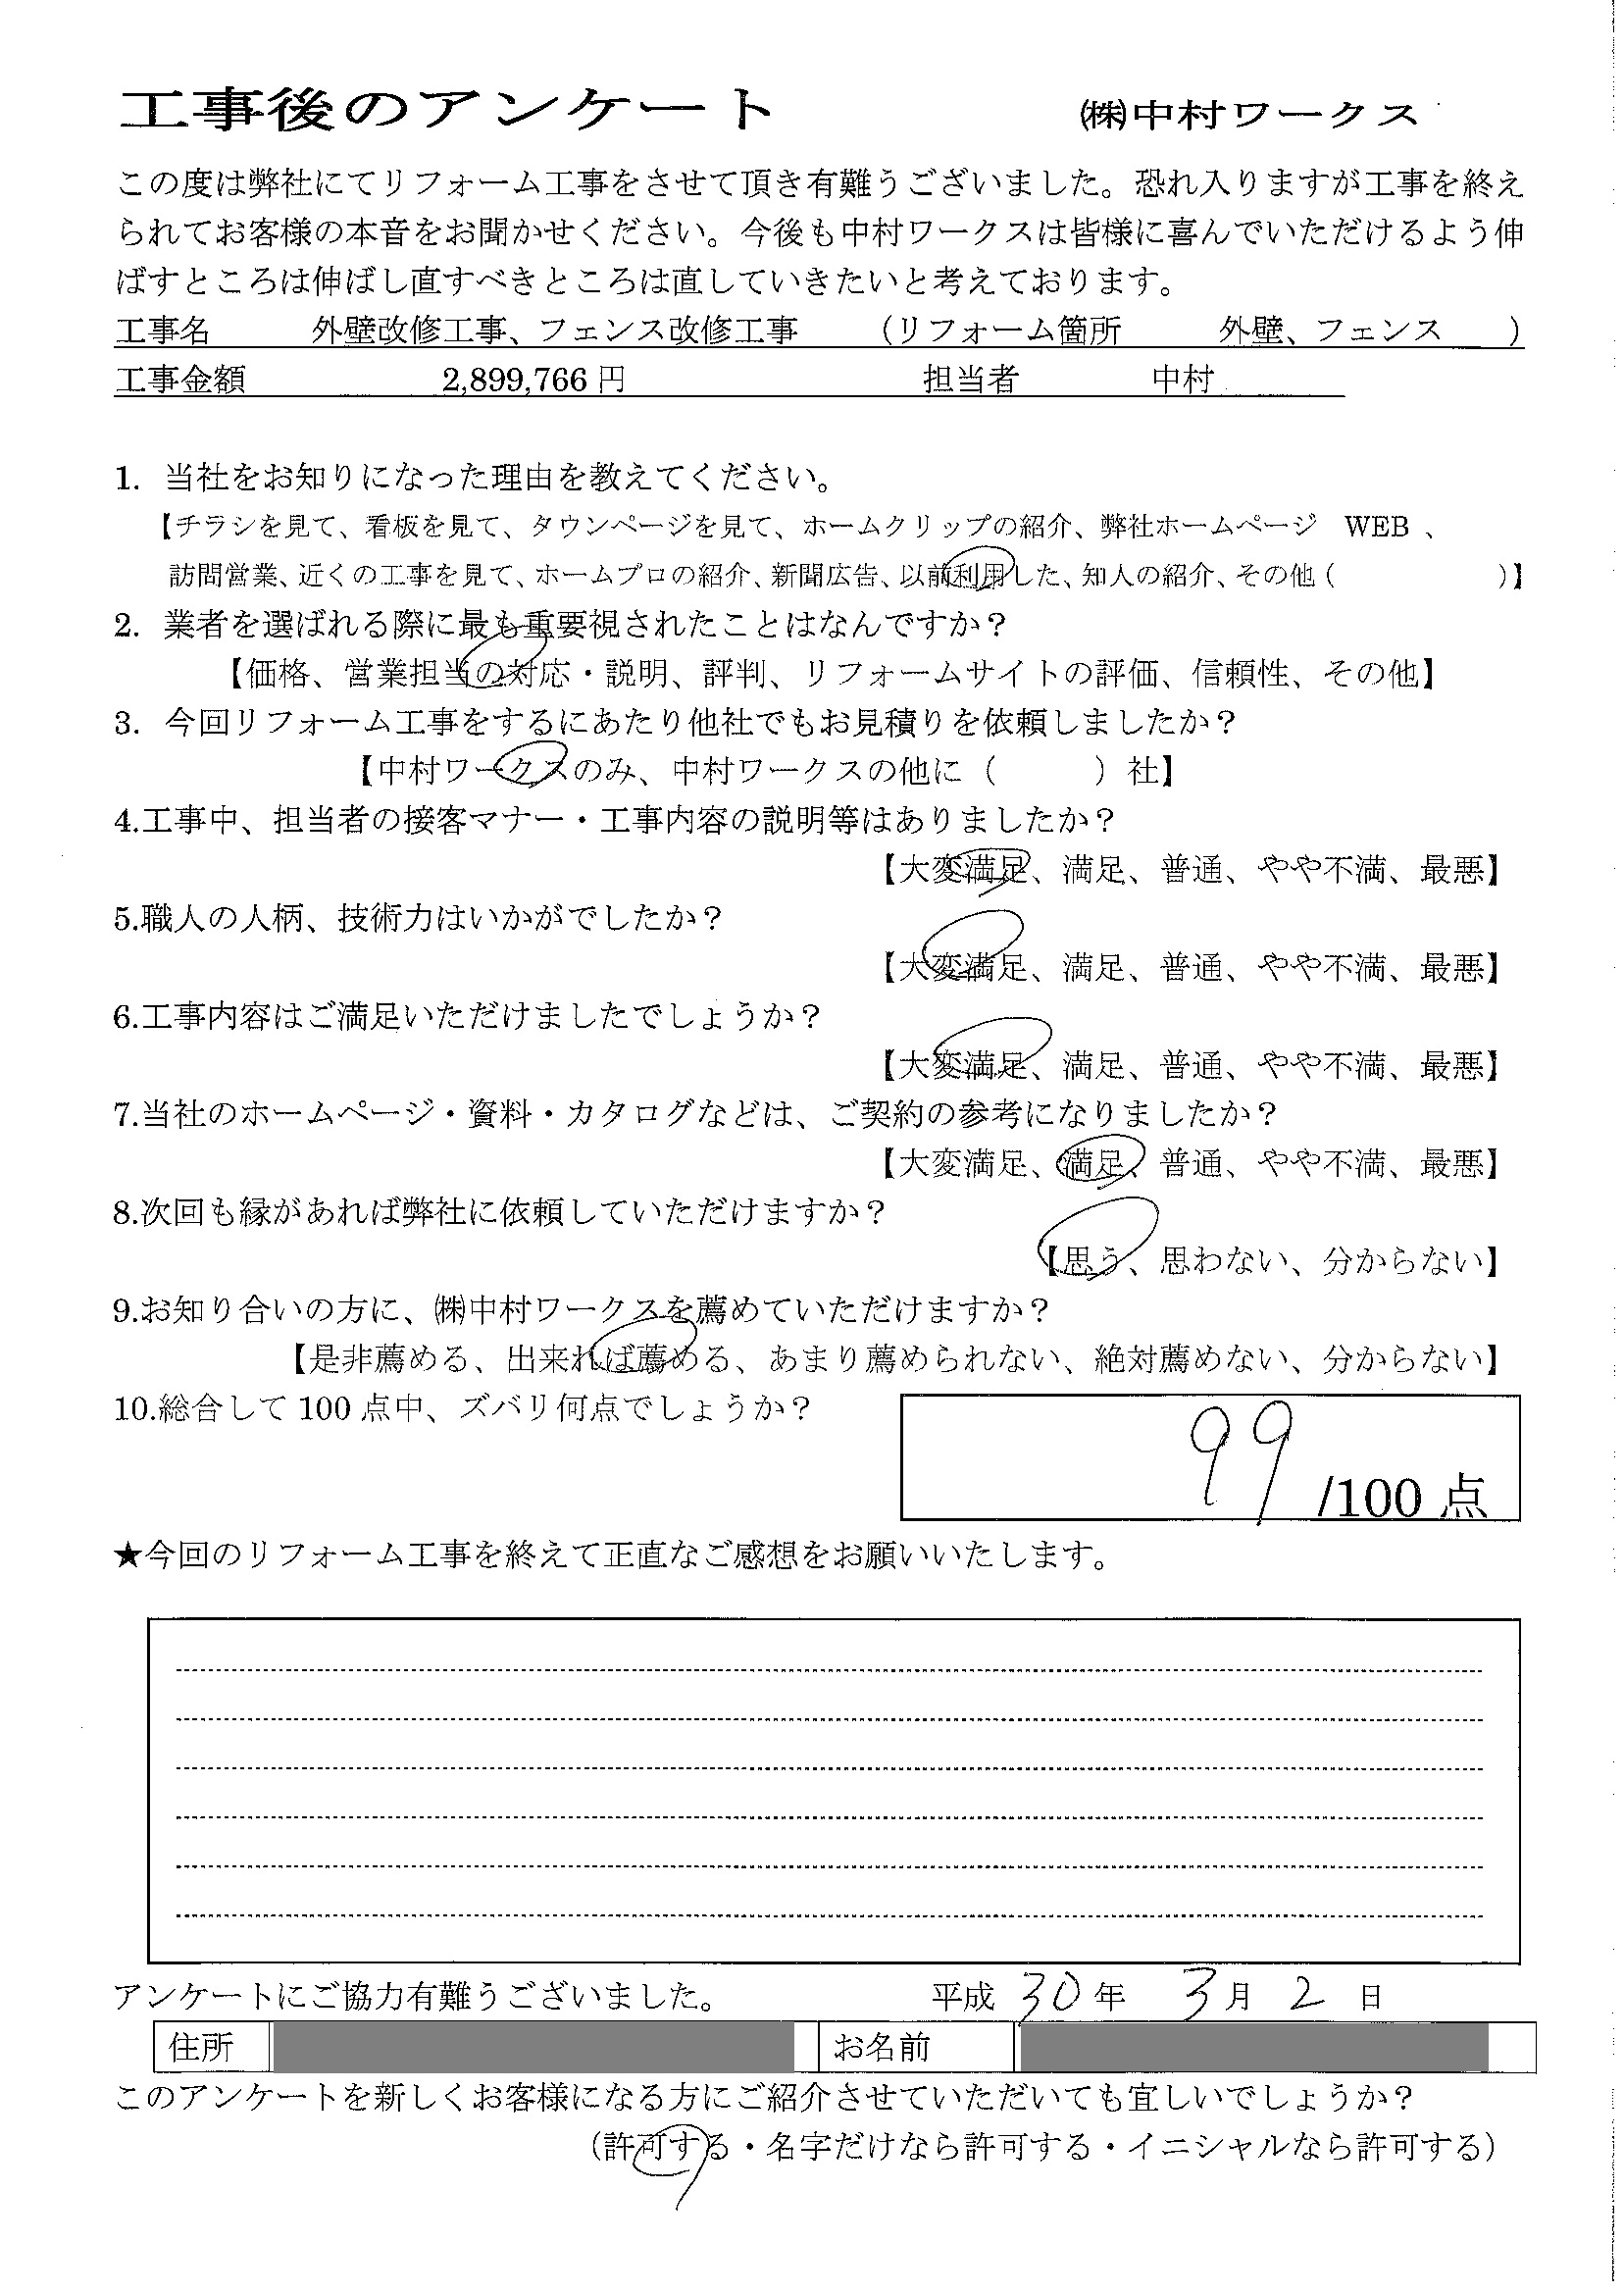 工事後のアンケート ㈱中村ワークス
この度は弊社にてリフォーム工事をさせて頂き有難うございました。恐れ入りますが工事を終え
られてお客様の本音をお聞かせください。今後も中村ワークスは皆様に喜んでいただけるよう伸
ばすところは伸ばし直すべきところは直していきたいと考えております。
工事名 外壁改修工事、フェンス改修工事 （リフォーム箇所 外壁、フェンス ）
工事金額 2,899,766 円 担当者 中村
1. 当社をお知りになった理由を教えてください。
【チラシを見て、看板を見て、タウンページを見て、ホームクリップの紹介、弊社ホームページ WEB 、
訪問営業、近くの工事を見て、ホームプロの紹介、新聞広告、以前利用した、知人の紹介、その他（ ）】
2. 業者を選ばれる際に最も重要視されたことはなんですか？
【価格、営業担当の対応・説明、評判、リフォームサイトの評価、信頼性、その他】
3. 今回リフォーム工事をするにあたり他社でもお見積りを依頼しましたか？
【中村ワークスのみ、中村ワークスの他に（ ）社】
4.工事中、担当者の接客マナー・工事内容の説明等はありましたか？
【大変満足、満足、普通、やや不満、最悪】
5.職人の人柄、技術力はいかがでしたか？
【大変満足、満足、普通、やや不満、最悪】
6.工事内容はご満足いただけましたでしょうか？
【大変満足、満足、普通、やや不満、最悪】
7.当社のホームページ・資料・カタログなどは、ご契約の参考になりましたか？
【大変満足、満足、普通、やや不満、最悪】
8.次回も縁があれば弊社に依頼していただけますか？
【思う、思わない、分からない】
9.お知り合いの方に、㈱中村ワークスを薦めていただけますか？
【是非薦める、出来れば薦める、あまり薦められない、絶対薦めない、分からない】
10.総合して 100 点中、ズバリ何点でしょうか？
99 /100 点
★今回のリフォーム工事を終えて正直なご感想をお願いいたします。
アンケートにご協力有難うございました。 平成 30 年 3 月 2 日
住所 お名前
このアンケートを新しくお客様になる方にご紹介させていただいても宜しいでしょうか？
（許可する・名字だけなら許可する・イニシャルなら許可する）